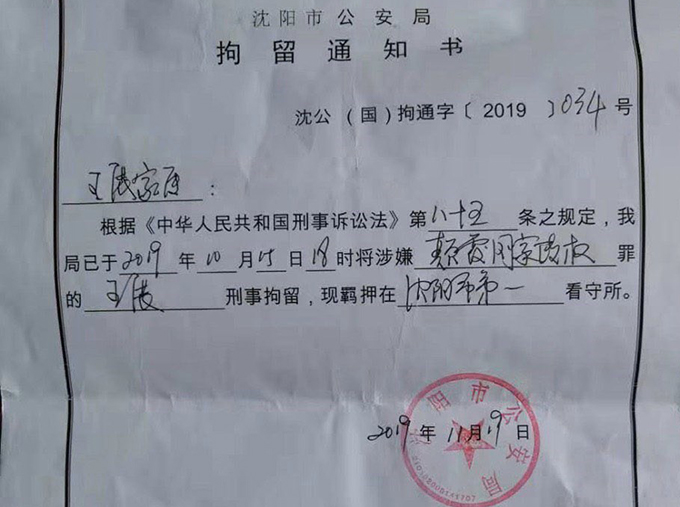 沈阳市公安局
拘留通知书
沈公（国）拘通字〔2019〕034号
王 家属：
根据《中华人民共和国刑事诉讼法》第八十五条之规定，我
局已于2019年10月15日18时将涉嫌颠覆国家政权罪
的王 刑事拘留，现羁押在沈阳市第一看守所。
2019年11月19日
沈阳市公安局